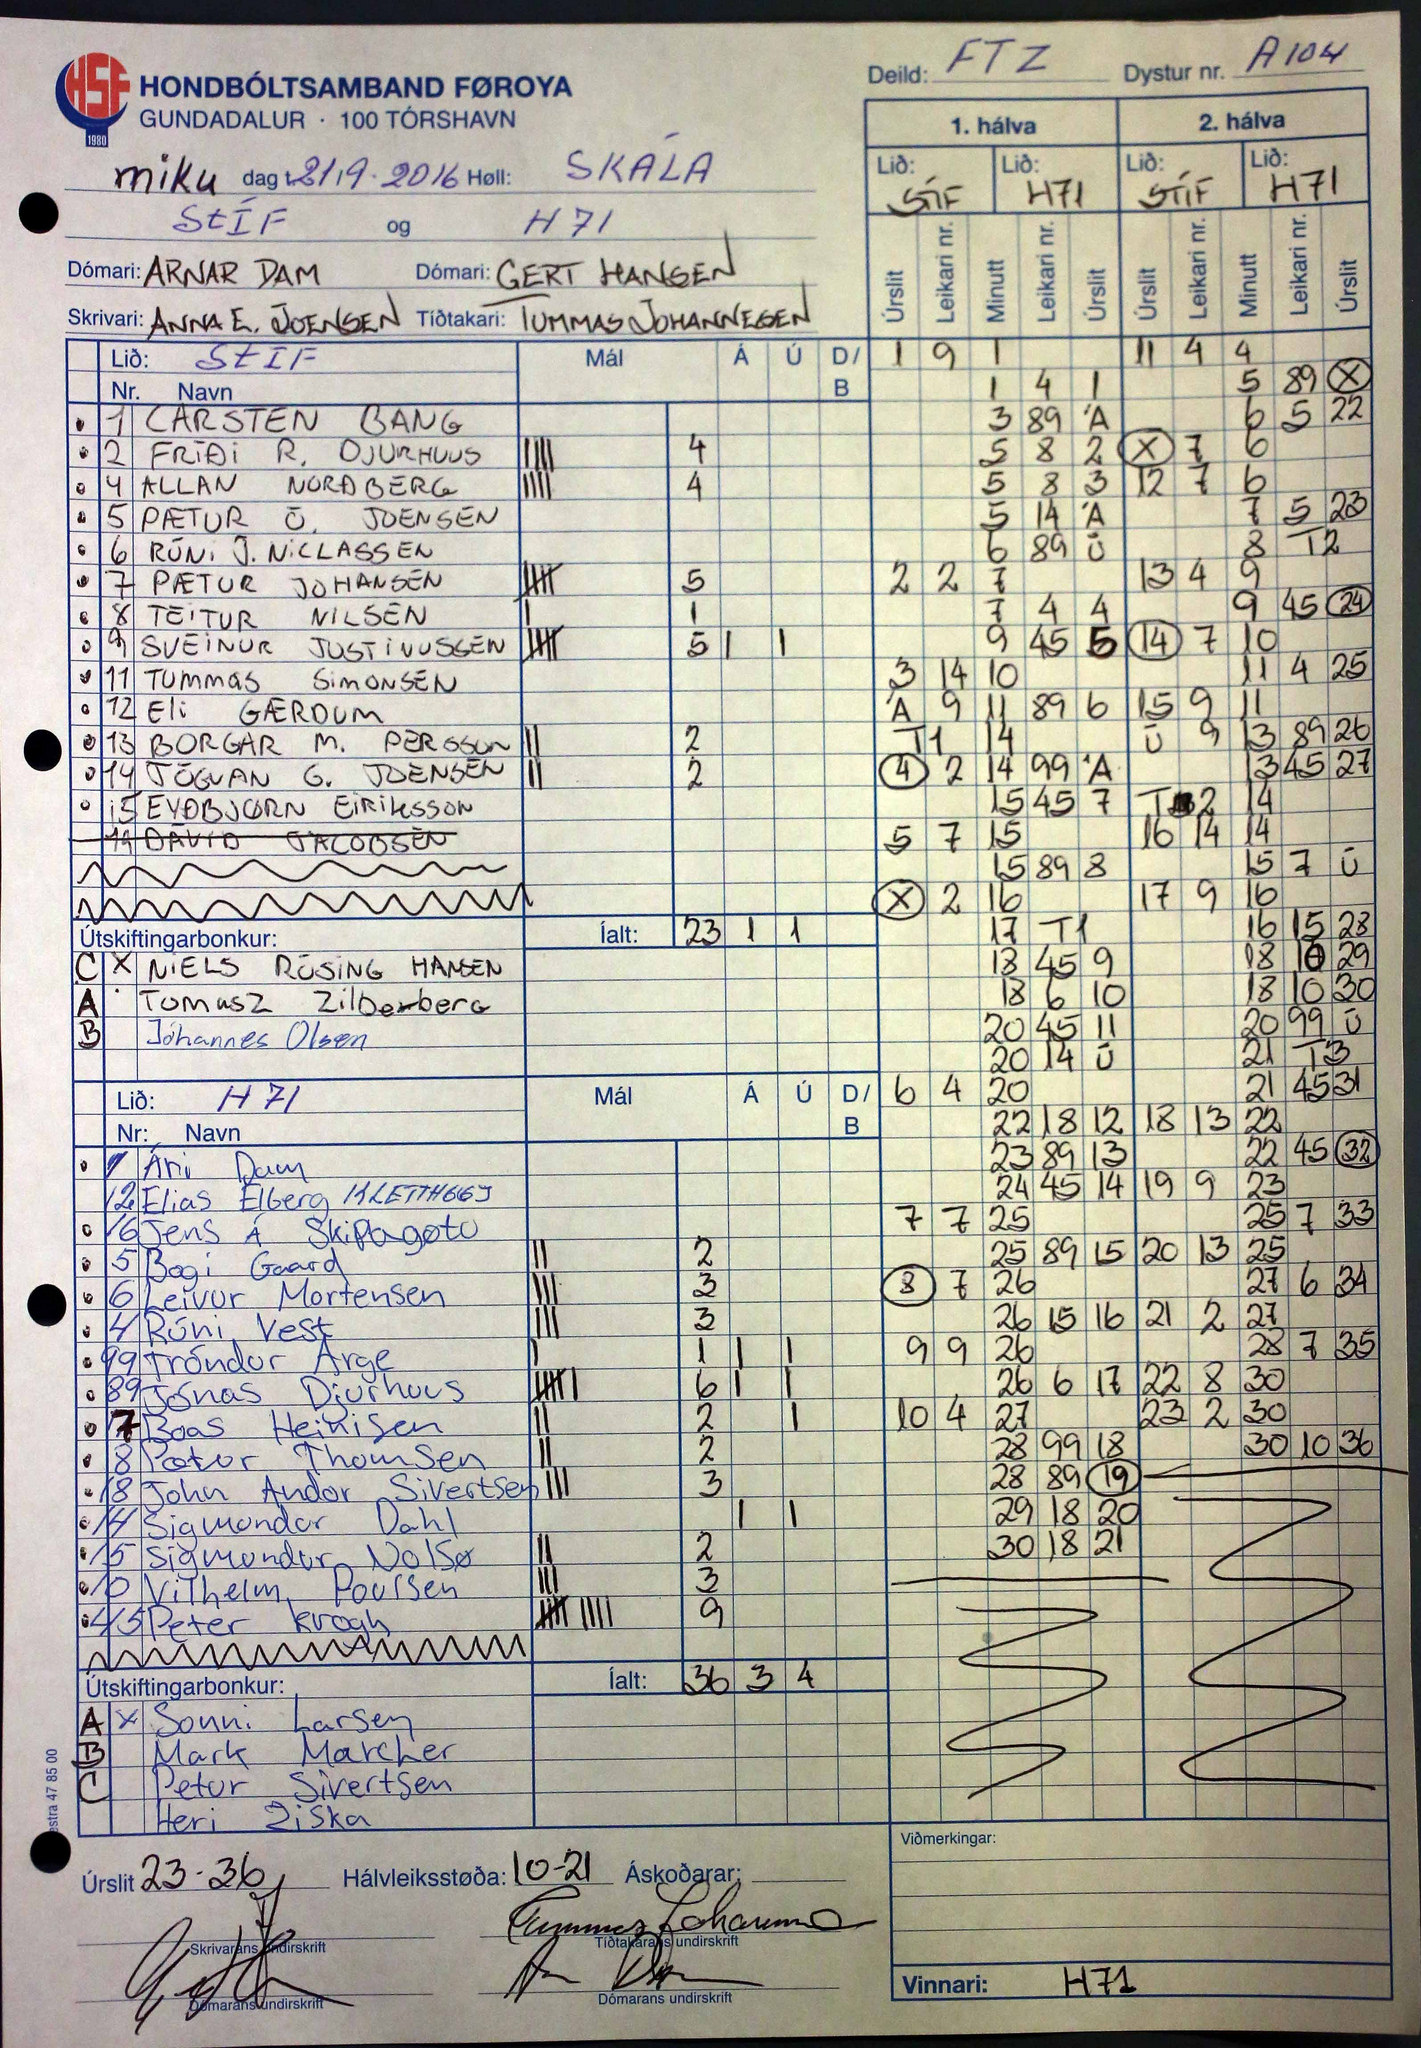 HSF
1980
HONDBÓLTSAMBAND FØROYA
GUNDADALUR · 100 TÓRSHAVN
Deild: FTZ Dystur nr. A104
miku dag t. 21/9-2016 Høll: SKÁLA
StÍF og H71
Dómari: ARNAR DAM Dómari: GERT HANSEN
Skrivari: ANNA E. JOENSEN Tíðtakari: TUMMAS JOHANNESEN
Lið: StÍF Mál Á Ú D/B
Nr. Navn
1 CARSTEN BANG
2 FRÍÐI R. DJURHUUS 4
4 ALLAN NORÐBERG 4
5 PÆTUR Ó. JOENSEN
6 RÓNI J. NICLASSEN
7 PÆTUR JOHANSEN 5
8 TEITUR NILSEN 1
9 SVEINUR JUSTINUSSEN 5 1 1
11 TUMMAS SIMONSEN
12 ELI GÆRDUM
13 BORGAR M. PERSSON 2
14 JÓGVAN G. JOENSEN 2
15 EYÐBJØRN EIRIKSSON
19 DÁVID JACOBSEN
Útskiftingarbonkur: Íalt: 23 1 1
C X NIELS RÖSING HANSEN
A Tomasz Zilberberg
B Jóhannes Olsen
Lið: H71 Mál Á Ú D/B
Nr: Navn
1 Ári Dam
12 Elias Elberg KLETTHEYGJ
16 Jens Á Skipagøtu
5 Bogi Gaard 2
6 Leivur Mortensen 3
4 Rúni Vest 3
99 Tróndur Arge 1 1 1
89 Jónas Djurhuus 6 1 1
7 Boas Heinisen 2 1
8 Pætur Thomsen 2
18 John Andor Sivertsen 3
14 Sigmundur Dahl 1 1
15 Sigmundur Nolsø 2
10 Vilhelm Poulsen 3
45 Peter Krogh 9
Útskiftingarbonkur: Íalt: 36 3 4
A X Sonni Larsen
B Mark Marcher
C Petur Sivertsen
Heri Ziska
estra 47 85 00
Úrslit 23-36 Hálvleiksstøða: 10-21 Áskoðarar:
Skrivarans undirskrift Tíðtakarans undirskrift
Dómarans undirskrift Dómarans undirskrift
1. hálva 2. hálva
Lið: STÍF Lið: H71 Lið: STÍF Lið: H71
Úrslit Leikari nr. Minutt Leikari nr. Úrslit Úrslit Leikari nr. Minutt Leikari nr. Úrslit
1 9 1 11 4 4
1 4 1 5 89 X
3 89 Á 6 5 22
5 8 2 X 7 6
5 8 3 12 7 6
5 14 Á 7 5 23
6 89 Ú 8 T2
2 2 7 13 4 9
7 4 4 9 45 24
9 45 5 14 7 10
3 14 10 11 4 25
Á 9 11 89 6 15 9 11
T1 14 Ú 9 13 89 26
4 2 14 99 Á 13 45 27
15 45 7 T 2 14
5 7 15 16 14 14
15 89 8 15 7 Ú
X 2 16 17 9 16
17 T1 16 15 28
18 45 9 18 10 29
18 6 10 18 10 30
20 45 11 20 99 Ú
20 14 Ú 21 T3
6 4 20 21 45 31
22 18 12 18 13 22
23 89 13 22 45 32
24 45 14 19 9 23
7 7 25 25 7 33
25 89 15 20 13 25
8 7 26 27 6 34
26 15 16 21 2 27
9 9 26 28 7 35
26 6 17 22 8 30
10 4 27 23 2 30
28 99 18 30 10 36
28 89 19
29 18 20
30 18 21
Viðmerkingar:
Vinnari: H71